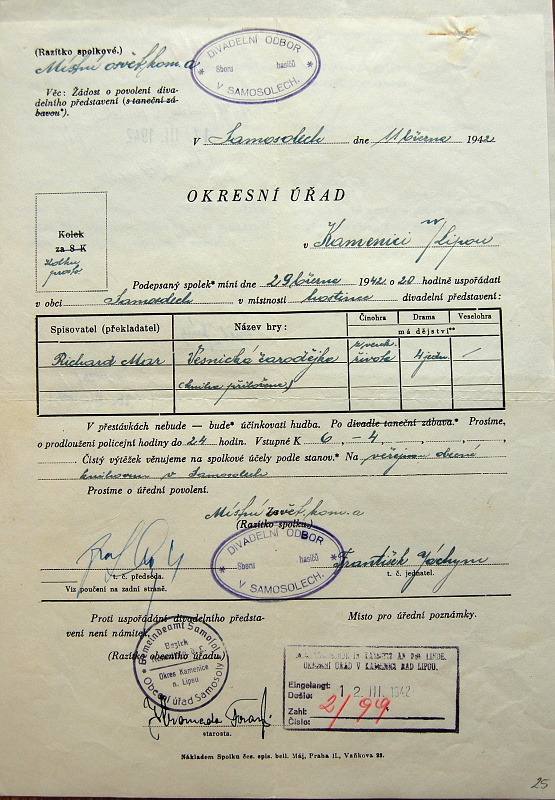 (Razítko spolkové.)
Místní osvět. kom. a
DIVADELNÍ ODBOR
* Sboru hasičů *
V SAMOSOLECH.
Věc: Žádost o povolení diva-
delního představení (s taneční zá-
bavou*).
V Samosolech dne 11 března 1942
OKRESNÍ ÚŘAD
Kolek
za 8 K
kolku
prosto
v Kamenici n/Lipou
Podepsaný spolek* míní dne 29 března 1942 o 20 hodině uspořádati
v obci Samosolech v místnosti hostince divadelní představení:
Spisovatel (překladatel) Název hry: Činohra Drama Veselohra
má dějství**
Richard Mar Vesnická čarodějka života 4 jedn. —
(kniha přiložena)
V přestávkách nebude — bude* účinkovati hudba. Po divadle taneční zábava.* Prosíme,
o prodloužení policejní hodiny do 24 hodin. Vstupné K 6, – 4,
Čistý výtěžek věnujeme na spolkové účely podle stanov.* Na veřejnou obecní
knihovnu v Samosolech
Prosíme o úřední povolení.
Místní osvět. kom. a
(Razítko spolku.)
DIVADELNÍ ODBOR
* Sboru hasičů *
V SAMOSOLECH.
František Jáchym
t. č. předseda. t. č. jednatel.
Viz poučení na zadní straně.
Proti uspořádání divadelního předsta-
vení není námitek.
Místo pro úřední poznámky.
(Razítko obecního úřadu.)
Gemeindeamt Samosol
Bezirk
Okres Kamenice
n. Lipou
Obecní úřad Samosoly
IN KAMNITZ AN DER LINDE.
OKRESNÍ ÚŘAD V KAMENICI NAD LIPOU.
Eingelangt:
Došlo: 12 III. 1942
Zahl:
Číslo: 2/99
starosta.
Nákladem Spolku čes. spis. bel. Máj, Praha II., Vaňkova 23.
25